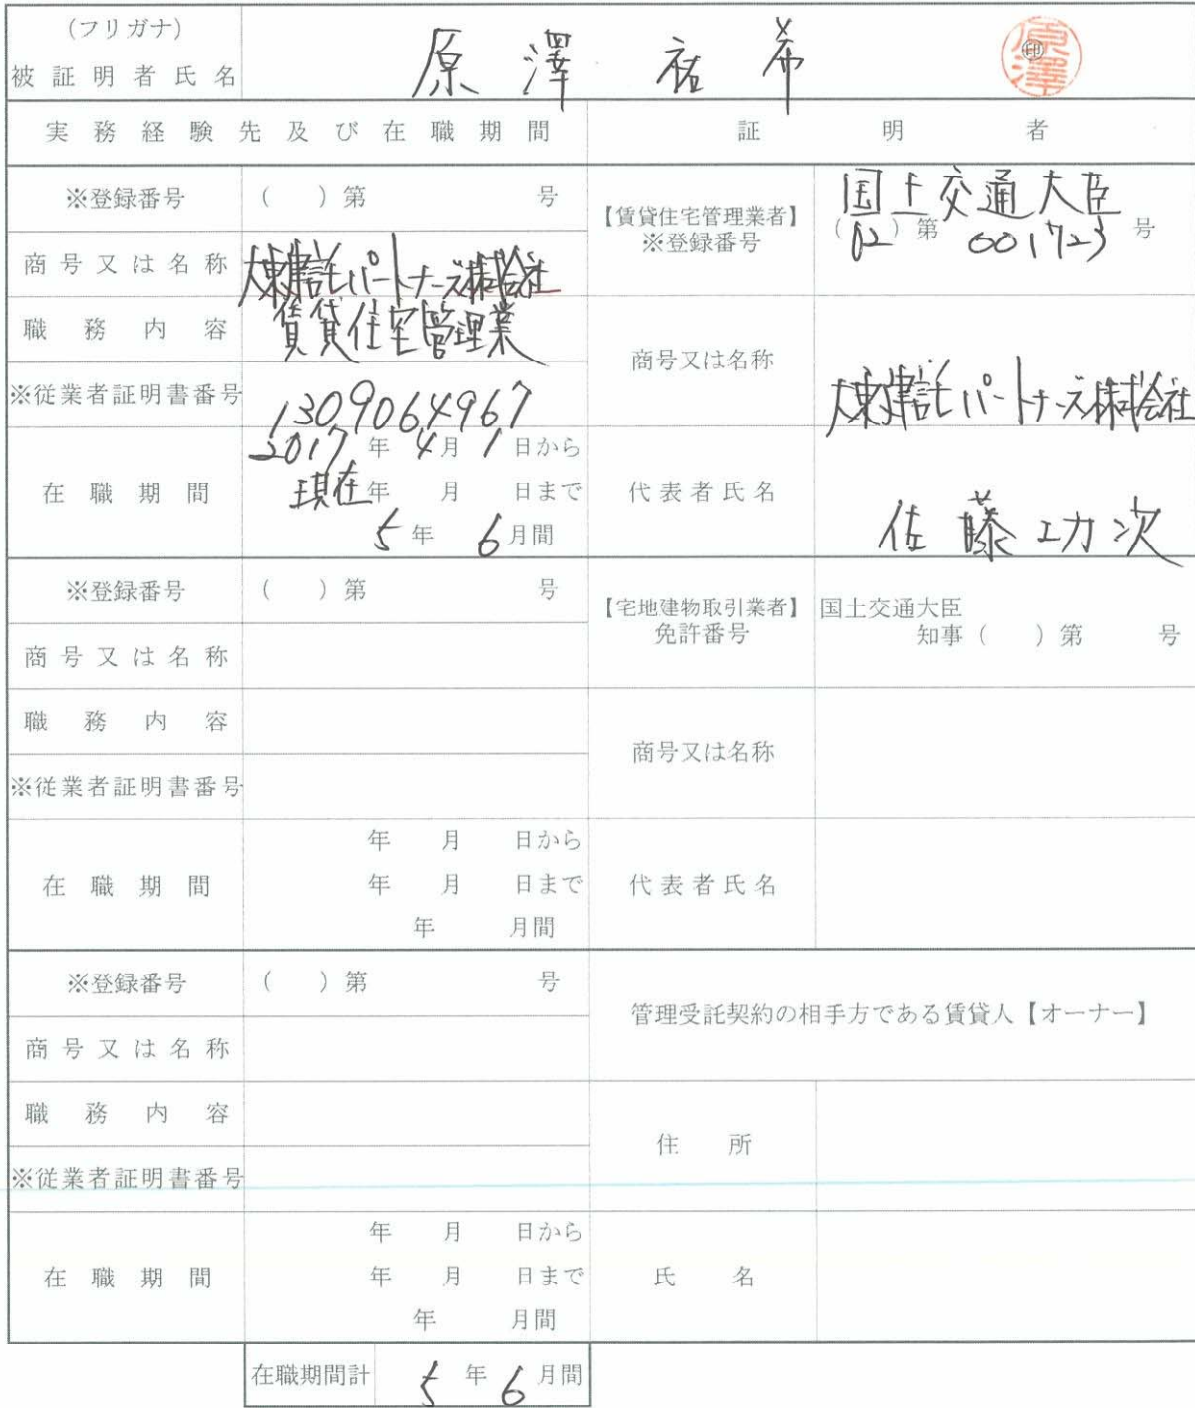 (フリガナ)
被証明者氏名
原澤 祐希
印
原澤
実務経験先及び在職期間
証明者
※登録番号
( ) 第 号
商号又は名称
大東建託パートナーズ株式会社
職務内容
賃貸住宅管理業
※従業者証明書番号
1309064967
在職期間
2017年 4月 1日から
現在年 月 日まで
5年 6月間
【賃貸住宅管理業者】
※登録番号
国土交通大臣
(02) 第 001723 号
商号又は名称
大東建託パートナーズ株式会社
代表者氏名
佐藤功次
※登録番号
( ) 第 号
商号又は名称
職務内容
※従業者証明書番号
在職期間
年 月 日から
年 月 日まで
年 月間
【宅地建物取引業者】
免許番号
国土交通大臣
知事 ( ) 第 号
商号又は名称
代表者氏名
※登録番号
( ) 第 号
商号又は名称
職務内容
※従業者証明書番号
在職期間
年 月 日から
年 月 日まで
年 月間
管理受託契約の相手方である賃貸人【オーナー】
住所
氏名
在職期間計
5年 6月間